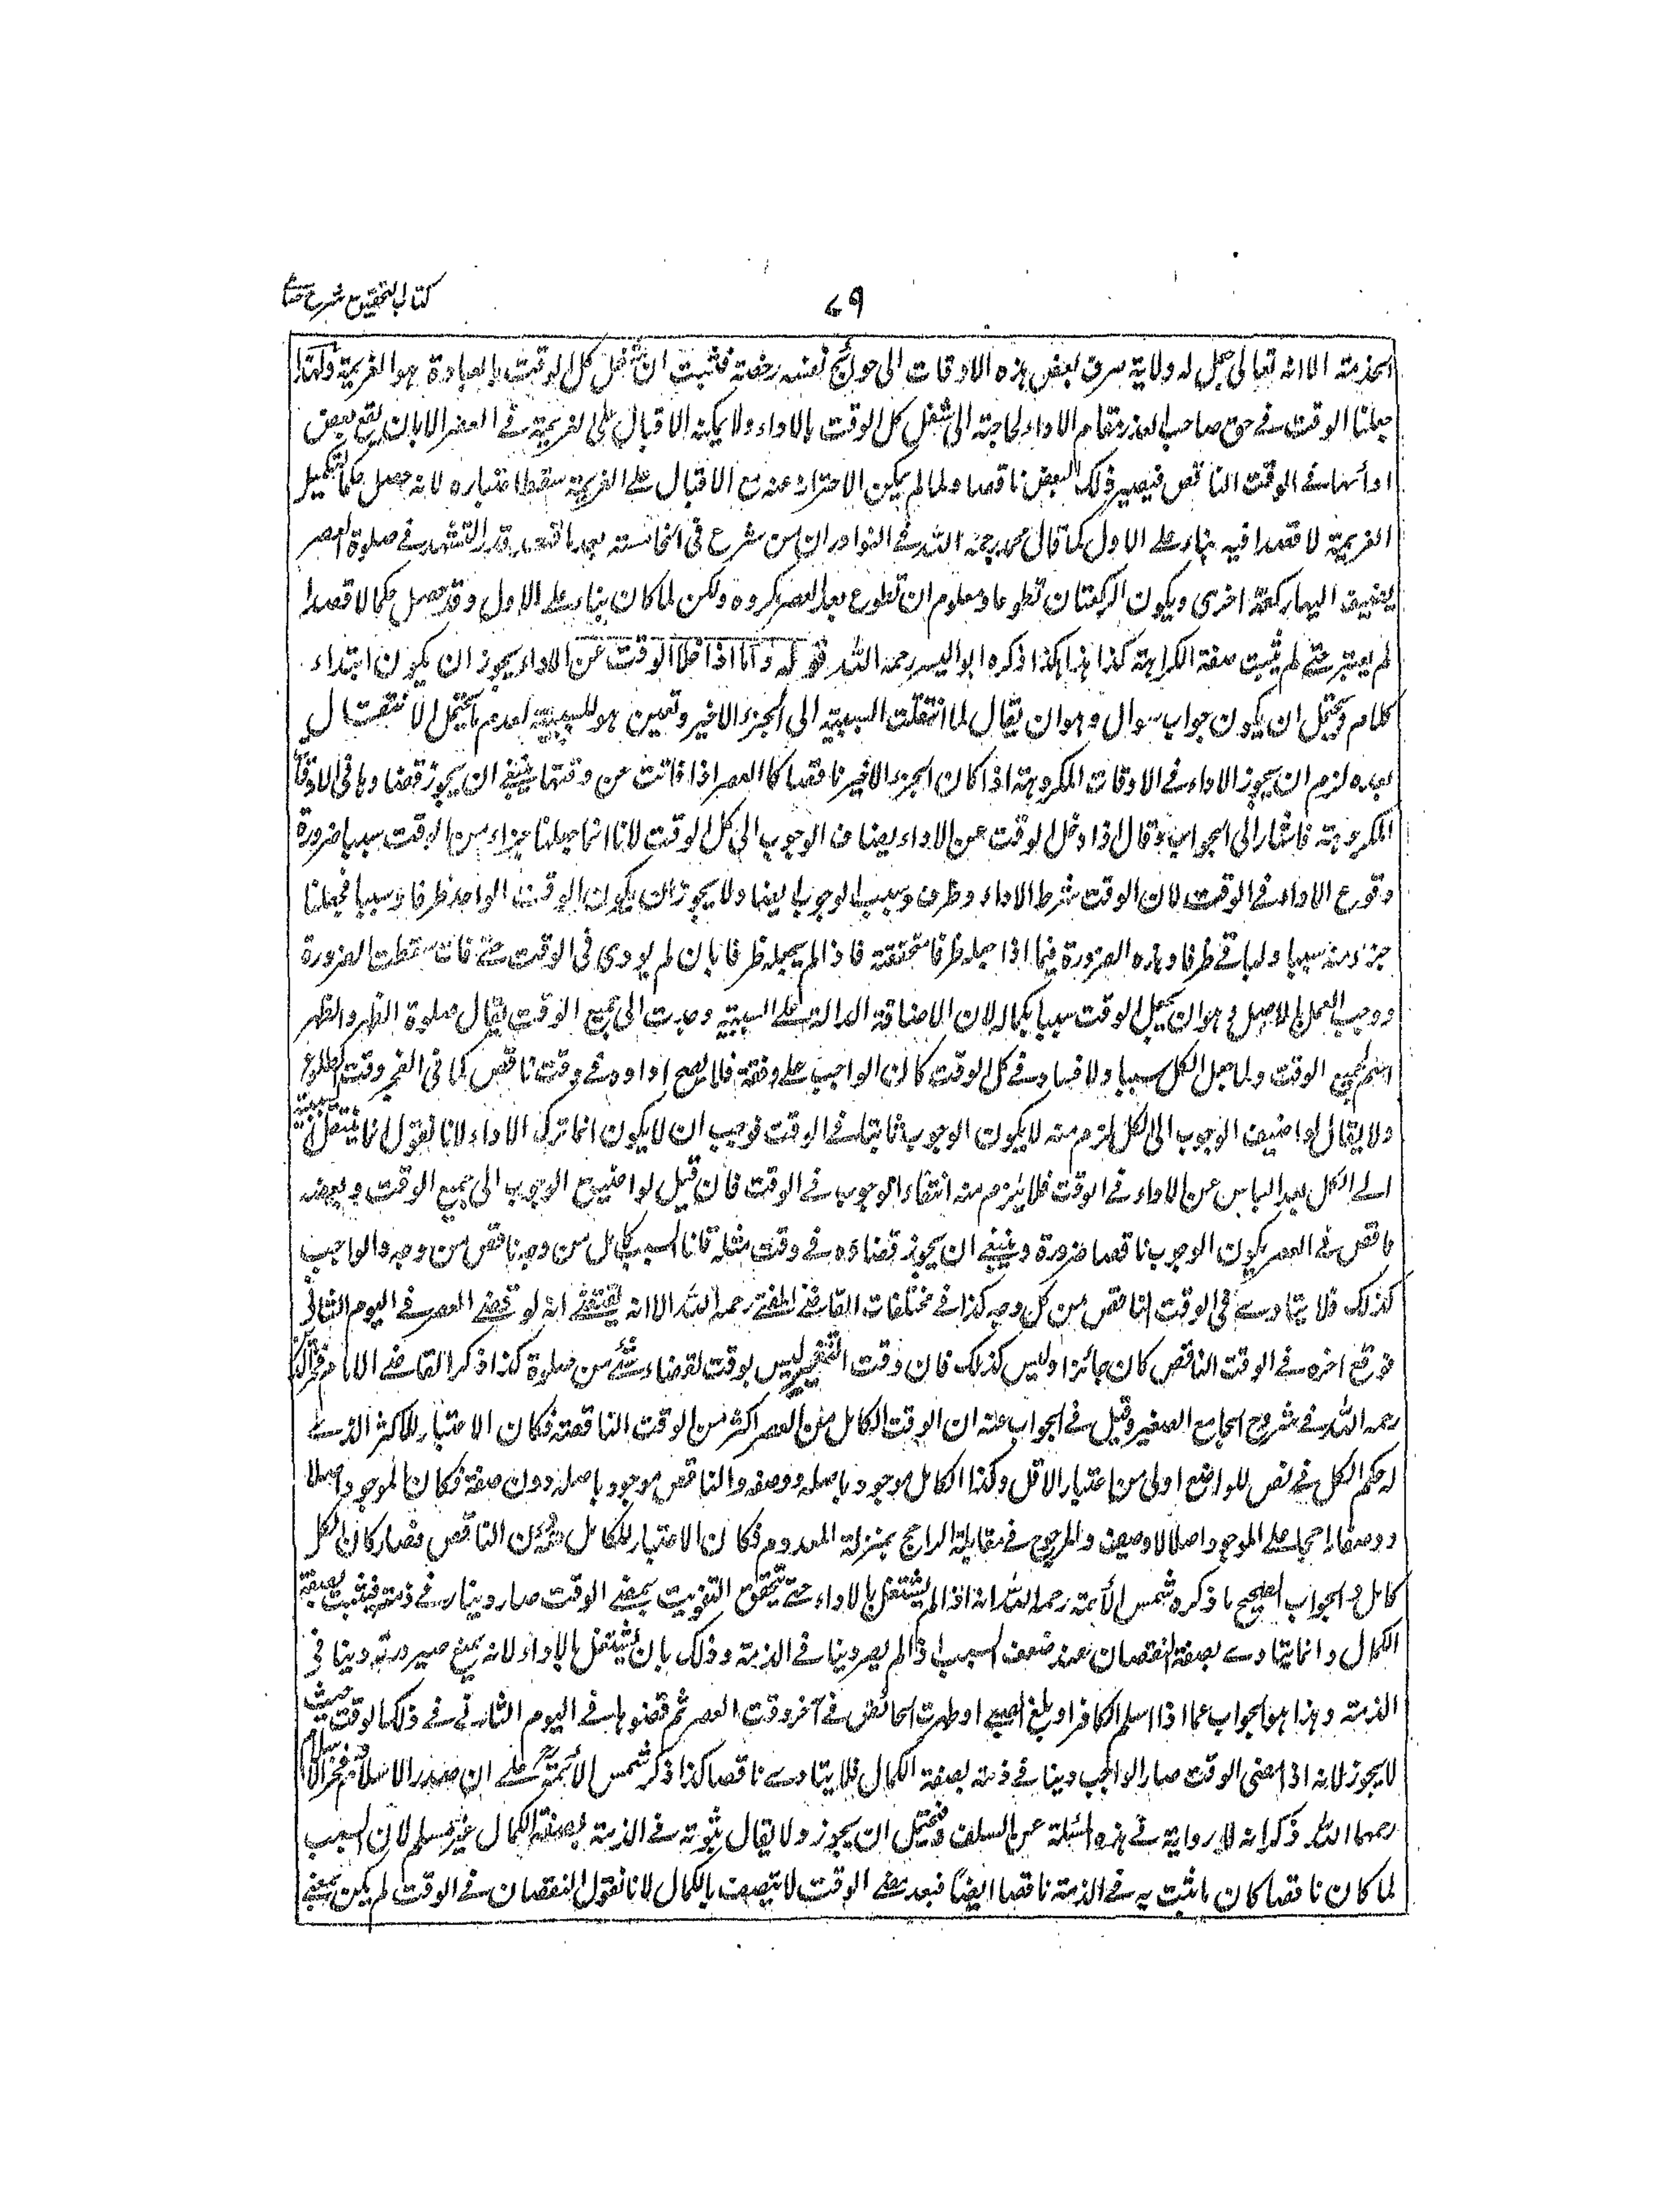 كتاب التحقيق شرح حسامى
٧٩
الخدمة الا انه تعالى جعل له ولاية صرف بعض هذه الاوقات الى حوائج نفسه رخصة فثبت ان شغل كل الوقت بالعبادة هو العزيمة ولهذا
جعلنا الوقت فى حق صاحب العذر مقام الاداء لحاجته الى شغل كل الوقت بالاداء ولا يمكنه الاقبال على العزيمة فى العصر الا بان يقع بعض
ادائها فى الوقت الناقص فيصير ذلك البعض ناقصا ولما لم يمكن الاحتراز عنه مع الاقبال على العزيمة سقط اعتباره لانه حصل حكما لتكميل
العزيمة لا قصدا فيه بناء على الاول كما قال محمد رحمه الله فى النوادر ان من شرع فى الخامسة بعد ما قعد قدر التشهد فى صلوة العصر
يضيف اليها ركعة اخرى ويكون الركعتان تطوعا ومعلوم ان تطوع بعد العصر مكروه ولكن لما كان بناء على الاول وقد حصل حكما لا قصدا
لم يعتبر حتى لم يثبت صفة الكراهة كذا هذا هكذا ذكره ابو اليسر رحمه الله قوله واما اذا خلا الوقت عن الاداء يجوز ان يكون ابتداء
كلام ويحتمل ان يكون جواب سوال وهو ان يقال لما انتقلت السببية الى الجزء الاخير وتعين هو للسببية لعدم ما يحتمل الانتقال
بعده لزم ان يجوز الاداء فى الاوقات المكروهة اذا كان الجزء الاخير ناقصا كالعصر اذا فاتت عن وقتها ينبغى ان يجوز قضاؤها فى الاوقات
المكروهة فاشار الى الجواب وقال اذا خلا الوقت عن الاداء يضاف الوجوب الى كل الوقت لانا انما جعلنا جزاء من الوقت سببا ضرورة
وقوع الاداء فى الوقت لان الوقت شرط الاداء وظرف وسبب الوجوب ايضا ولا يجوز ان يكون الوقت الواحد ظرفا وسببا فجعلنا
جزء منه سببا والباقى ظرفا وهذه الضرورة فيما اذا جعله ظرفا متحققة فاذا لم يجعله ظرفا بان لم يودى فى الوقت حتى فات سقطت الضرورة
ووجب العمل بالاصل وهو ان يجعل الوقت سببا بكماله لان الاضافة الدالة على السببية وجدت الى جميع الوقت يقال صلوة الظهر والظهر
اسم لجميع الوقت ولما جعل الكل سببا ولا فساد فى كل الوقت كان الواجب على وفقه فلا يصح اداوه فى وقت ناقص كما فى الفجر وقت الطلوع
ولا يقال لو اضيف الوجوب الى الكل لزم منه لا يكون الوجوب ثابتا فى الوقت فوجب ان لا يكون اثما ترك الاداء لانا نقول انما ينتقل السببية
الى الكل بعد الياس عن الاداء فى الوقت فلا يلزم منه انتفاء الوجوب فى الوقت فان قيل لو اضيف الوجوب الى جميع الوقت وبعضه
ناقص فى العصر يكون الوجوب ناقصا ضرورة وينبغى ان يجوز قضاؤه فى وقت مثله قلنا السبب كامل من وجه ناقص من وجه والواجب
كذلك فلا يتادى فى الوقت الناقص من كل وجه كذا فى مختلفات القاضى المفتى رحمه الله الا انه يقتضى انه لو قضى العصر فى اليوم الثانى
فوقع اخره فى الوقت الناقص كان جائزا وليس كذلك فان وقت التغير ليس بوقت لقضاء شئ من صلوة كذا ذكر القاضى الامام فخر الدين
رحمه الله فى شروح الجامع الصغير وقيل فى الجواب عنه ان الوقت الكامل من العصر اكثر من الوقت الناقصة فكان الاعتبار للاكثر الذى
له حكم الكل فى بعض المواضع اولى من اعتبار الاقل وكذا الكامل موجود باصله ووصفه والناقص موجود باصله دون صفة فكان الموجود اصلا
ووصفا راجحا على الموجود اصلا لا وصف والمرجوح فى مقابلة الراجح بمنزلة المعدوم فكان الاعتبار للكامل دون الناقص فصار كان الكل
كامل والجواب الصحيح ما ذكره شمس الائمة رحمه الله انه اذا لم يشتغل بالاداء حتى تحقق التفويت بمضى الوقت صار دينا فى ذمته فيثبت بصفة
الكمال وانما يتادى بصفة النقصان عند ضعف السبب اذا لم يصر دينا فى الذمة وذلك بان يشتغل بالاداء لانه يمنع صيرورته دينا فى
الذمة وهذا هو الجواب عما اذا اسلم الكافر او بلغ الصبى او طهرت الحائض فى آخر وقت العصر ثم قضوها فى اليوم الثانى فى ذلك الوقت حيث
لا يجوز لانه اذا مضى الوقت صار الواجب دينا فى ذمته بصفة الكمال فلا يتادى ناقصا كذا ذكر شمس الائمة على ان صدر الاسلام وفخر الاسلام
رحمهما الله ذكرا انه لا رواية فى هذه المسئلة عن السلف فيحتمل ان يجوز ولا يقال ثبوته فى الذمة بصفة الكمال غير مسلم لان السبب
لما كان ناقصا كان ما ثبت به فى الذمة ناقصا ايضا فبعد مضى الوقت لا يتصف بالكمال لانا نقول النقصان فى الوقت لم يكن بمعنى